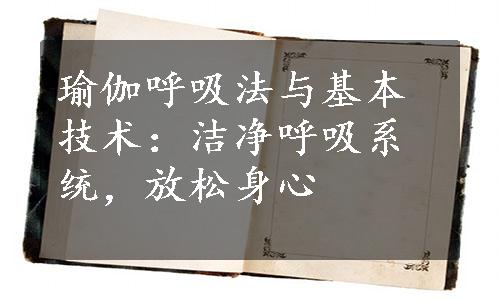 瑜伽呼吸法与基本
技术：洁净呼吸系
统，放松身心